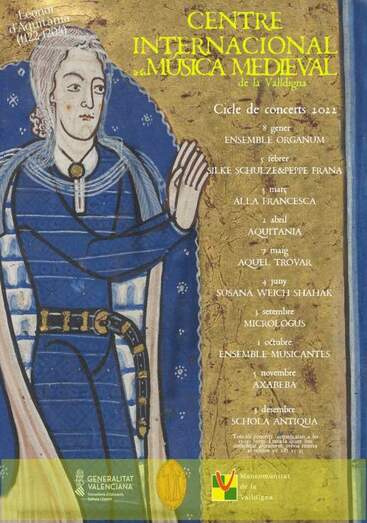 Leonor
d'Aquitània
(1122-1204)
CENTRE
INTERNACIONAL
de la MÚSICA MEDIEVAL
de la Valldigna
Cicle de concerts 2022
8 gener
ENSEMBLE ORGANUM
5 febrer
SILKE SCHULZE&PEPPE FRANA
5 març
ALLA FRANCESCA
2 abril
AQUITANIA
7 maig
AQUEL TROVAR
4 juny
SUSANA WEICH SHAHAK
3 setembre
MICROLOGUS
1 octubre
ENSEMBLE MUSICANTES
5 novembre
AXABEBA
3 desembre
SCHOLA ANTIQUA
Tots els concerts
GENERALITAT
VALENCIANA
Mancomunitat
de la
Valldigna